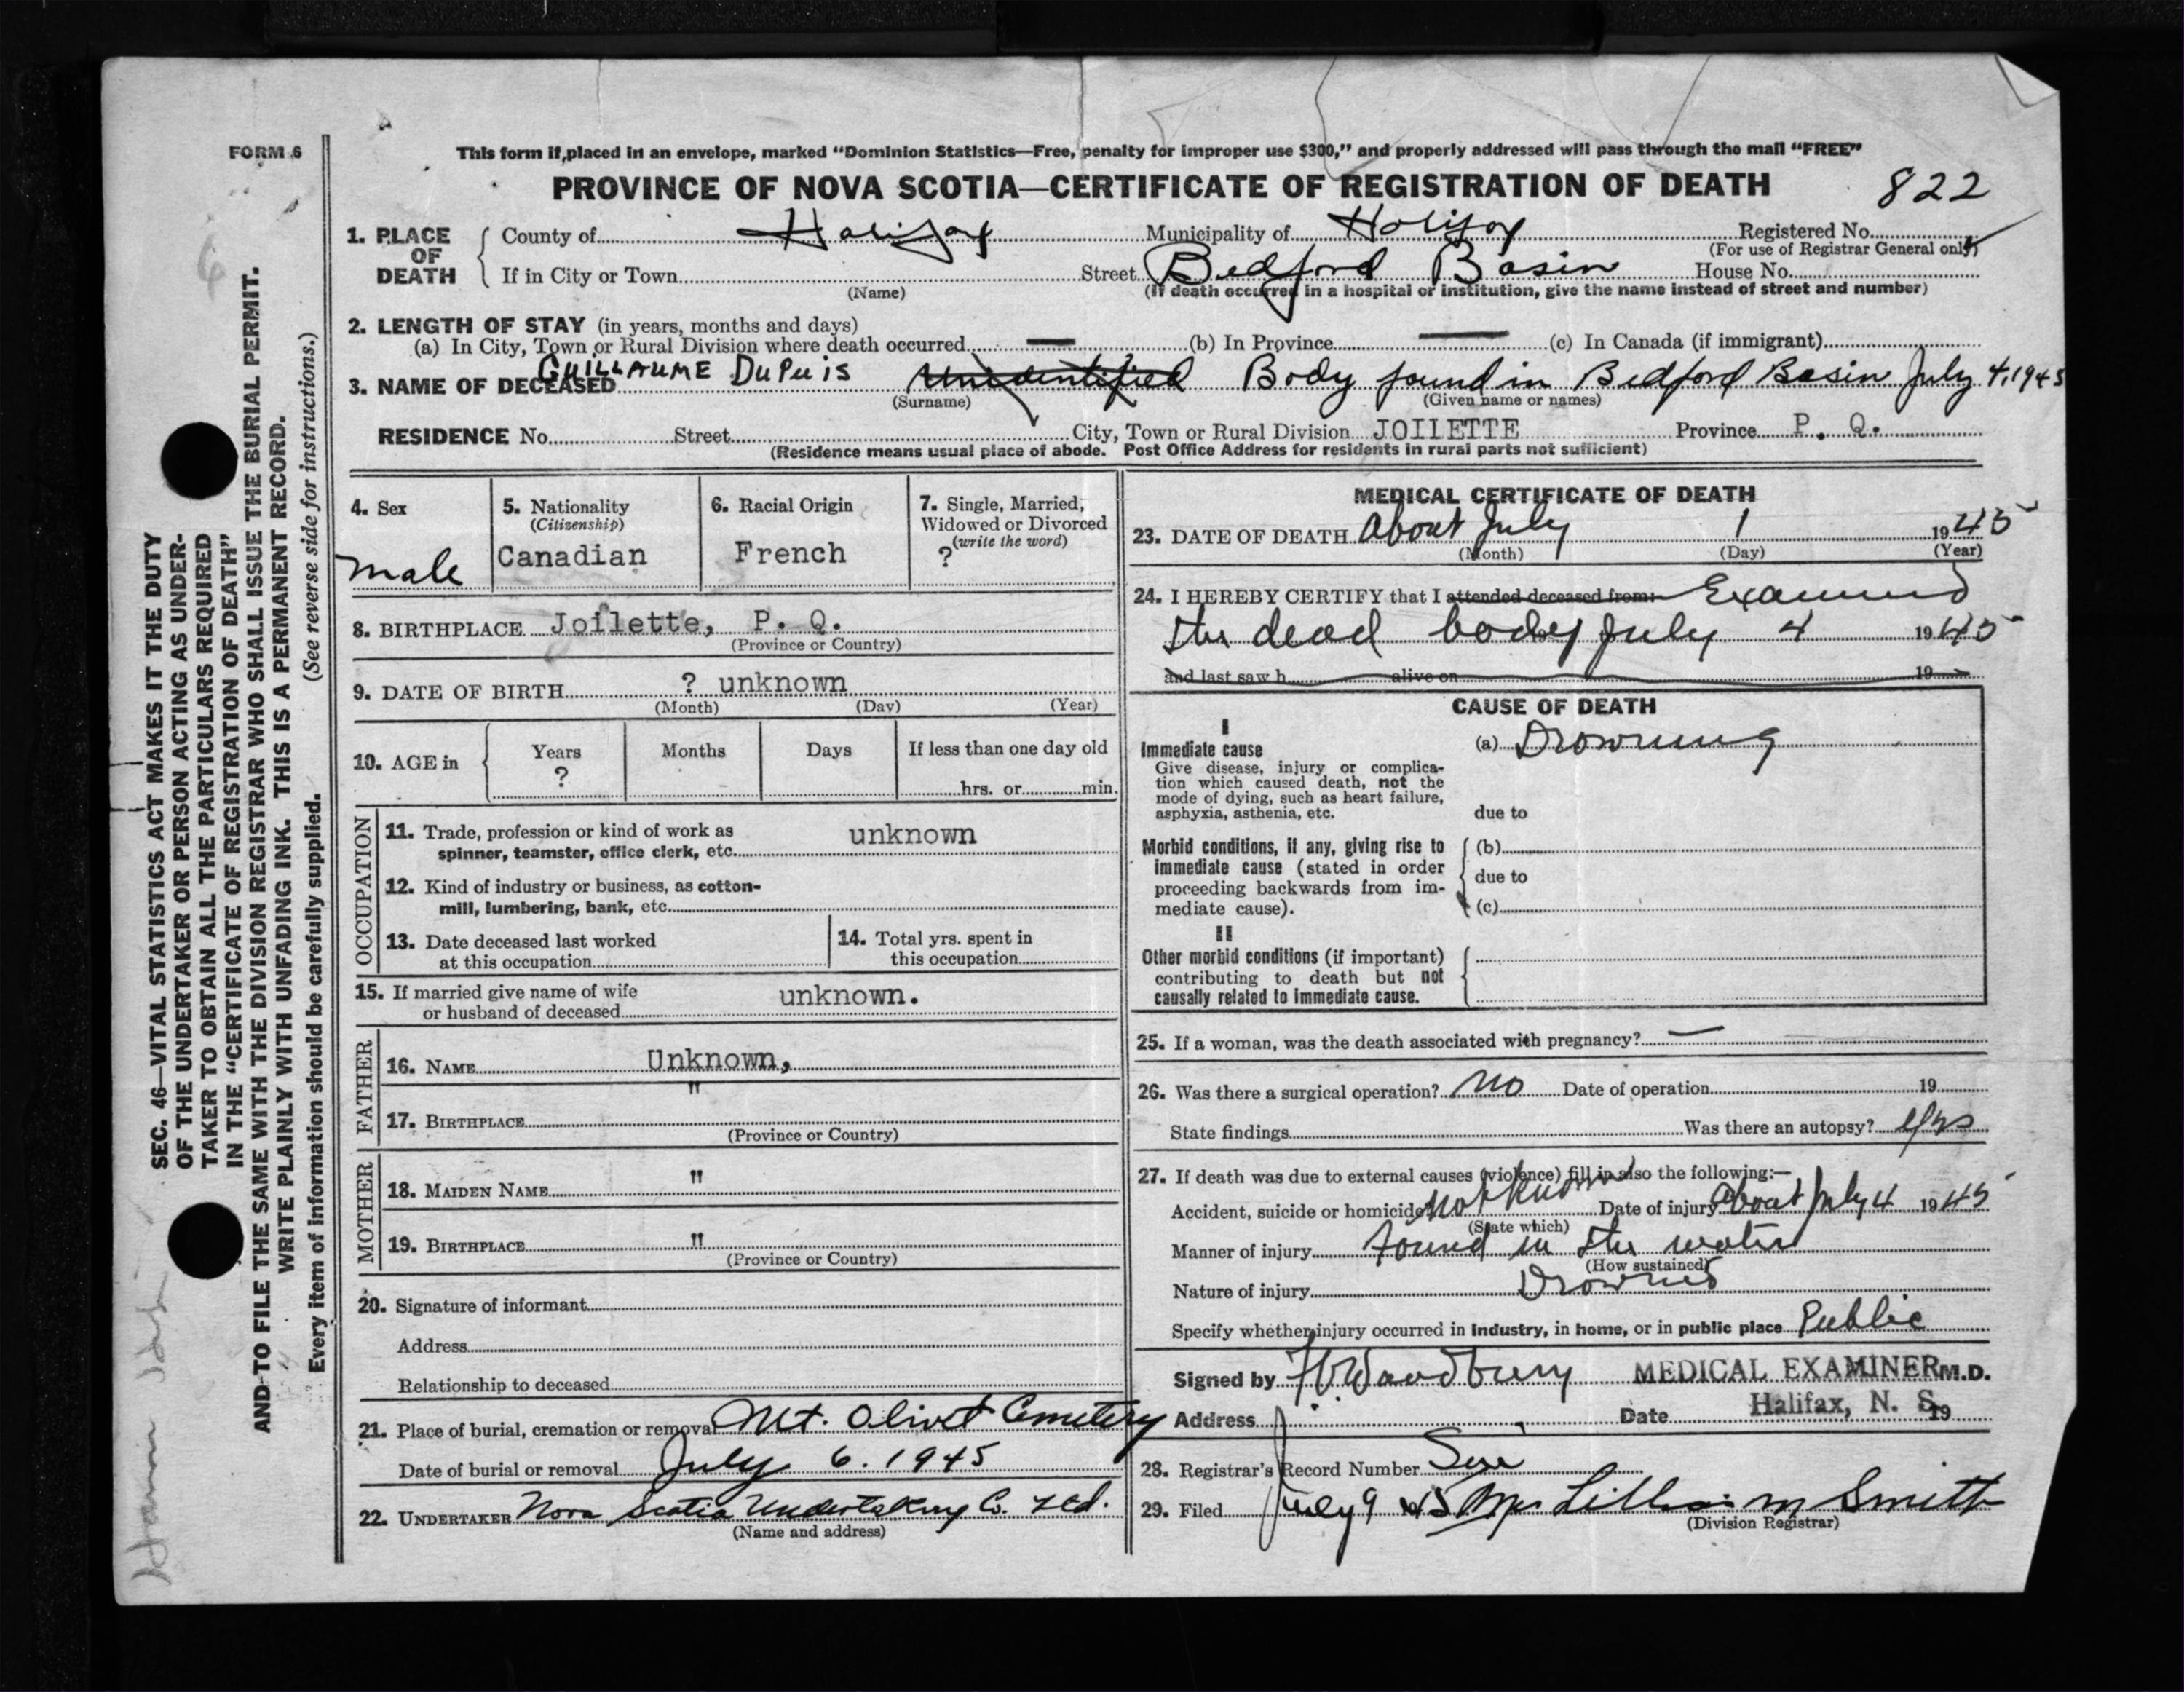 FORM 6
This form if placed in an envelope, marked "Dominion Statistics—Free, penalty for improper use $300," and properly addressed will pass through the mail "FREE"
PROVINCE OF NOVA SCOTIA—CERTIFICATE OF REGISTRATION OF DEATH 822
1. PLACE OF DEATH
County of Halifax Municipality of Halifax Registered No.
(For use of Registrar General only)
If in City or Town Street Bedford Basin House No.
(Name) (If death occurred in a hospital or institution, give the name instead of street and number)
2. LENGTH OF STAY (in years, months and days)
(a) In City, Town or Rural Division where death occurred — (b) In Province — (c) In Canada (if immigrant)
3. NAME OF DECEASED GUILLAUME DUPUIS Unidentified Body found in Bedford Basin July 4, 1945
(Surname) (Given name or names)
RESIDENCE No. Street City, Town or Rural Division JOIIETTE Province P. Q.
(Residence means usual place of abode. Post Office Address for residents in rural parts not sufficient)
4. Sex
male
5. Nationality
(Citizenship)
Canadian
6. Racial Origin
French
7. Single, Married,
Widowed or Divorced
(write the word)
?
8. BIRTHPLACE Joilette, P. Q.
(Province or Country)
9. DATE OF BIRTH ? unknown
(Month) (Day) (Year)
10. AGE in
Years Months Days If less than one day old
? hrs. or min.
OCCUPATION
11. Trade, profession or kind of work as
spinner, teamster, office clerk, etc. unknown
12. Kind of industry or business, as cotton-
mill, lumbering, bank, etc.
13. Date deceased last worked
at this occupation
14. Total yrs. spent in
this occupation
15. If married give name of wife
or husband of deceased unknown.
FATHER
16. NAME Unknown,
17. BIRTHPLACE "
(Province or Country)
MOTHER
18. MAIDEN NAME "
19. BIRTHPLACE "
(Province or Country)
20. Signature of informant
Address
Relationship to deceased
21. Place of burial, cremation or removal Mt. Olivet Cemetery
Date of burial or removal July 6. 1945
22. UNDERTAKER Nova Scotia Undertaking Co. Ltd.
(Name and address)
MEDICAL CERTIFICATE OF DEATH
23. DATE OF DEATH About July 1 1945
(Month) (Day) (Year)
24. I HEREBY CERTIFY that I attended deceased from: Examined
the dead body July 4 1945
and last saw h alive on 19
CAUSE OF DEATH
I
Immediate cause (a) Drowning
Give disease, injury or complica-
tion which caused death, not the
mode of dying, such as heart failure,
asphyxia, asthenia, etc. due to
Morbid conditions, if any, giving rise to (b)
immediate cause (stated in order due to
proceeding backwards from im-
mediate cause). (c)
II
Other morbid conditions (if important)
contributing to death but not
causally related to immediate cause.
25. If a woman, was the death associated with pregnancy? —
26. Was there a surgical operation? No Date of operation 19
State findings Was there an autopsy? Yes
27. If death was due to external causes (violence) fill in also the following:—
Accident, suicide or homicide Not Known Date of injury About July 4 1945
(State which)
Manner of injury Found in the water
(How sustained)
Nature of injury Drowned
Specify whether injury occurred in industry, in home, or in public place Public
Signed by Woodbury MEDICAL EXAMINER M.D.
Address Date Halifax, N. S. 19
28. Registrar's Record Number
29. Filed July 9 45 Mrs Lillian M Smith
(Division Registrar)
SEC. 46—VITAL STATISTICS ACT MAKES IT THE DUTY
OF THE UNDERTAKER OR PERSON ACTING AS UNDER-
TAKER TO OBTAIN ALL THE PARTICULARS REQUIRED
IN THE "CERTIFICATE OF REGISTRATION OF DEATH"
AND TO FILE THE SAME WITH THE DIVISION REGISTRAR WHO SHALL ISSUE THE BURIAL PERMIT.
WRITE PLAINLY WITH UNFADING INK. THIS IS A PERMANENT RECORD.
Every item of information should be carefully supplied. (See reverse side for instructions.)